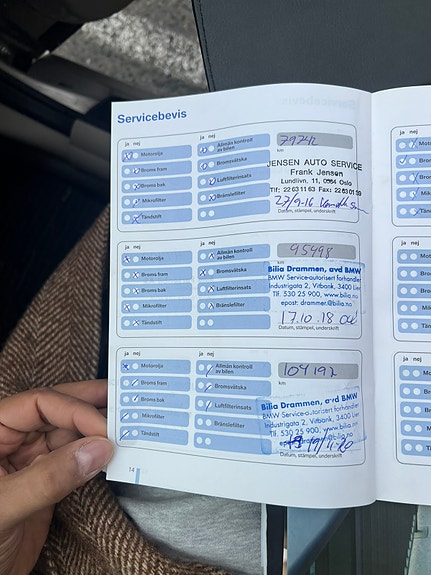 Servicebevis
ja nej
ja nej
79742
km
Motorolja
Allmän kontroll av bilen
Broms fram
Bromsvätska
Broms bak
Luftfilterinsats
Mikrofilter
Bränslefilter
Tändstift
JENSEN AUTO SERVICE
Frank Jensen
Lundlivn. 11, 0584 Oslo
Tlf: 22 63 11 63 Fax: 22 63 01 39
27/9-16
Datum, stämpel, underskrift
ja nej
ja nej
95498
km
Motorolja
Allmän kontroll av bilen
Broms fram
Bromsvätska
Broms bak
Luftfilterinsats
Mikrofilter
Bränslefilter
Tändstift
Bilia Drammen, avd BMW
BMW Service-autorisert forhandler
Industrigata 2, Vitbank, 3400 Lier
Tlf. 530 25 900, www.bilia.no
epost: drammer@bilia.no
17.10.18
Datum, stämpel, underskrift
ja nej
ja nej
104192
km
Motorolja
Allmän kontroll av bilen
Broms fram
Bromsvätska
Broms bak
Luftfilterinsats
Mikrofilter
Bränslefilter
Tändstift
Bilia Drammen, avd BMW
BMW Service-autorisert forhandler
Industrigata 2, Vitbank, 3400 Lier
Tlf. 530 25 900, www.bilia.no
@bilia.no
19/11-20
Datum, stämpel, underskrift
14